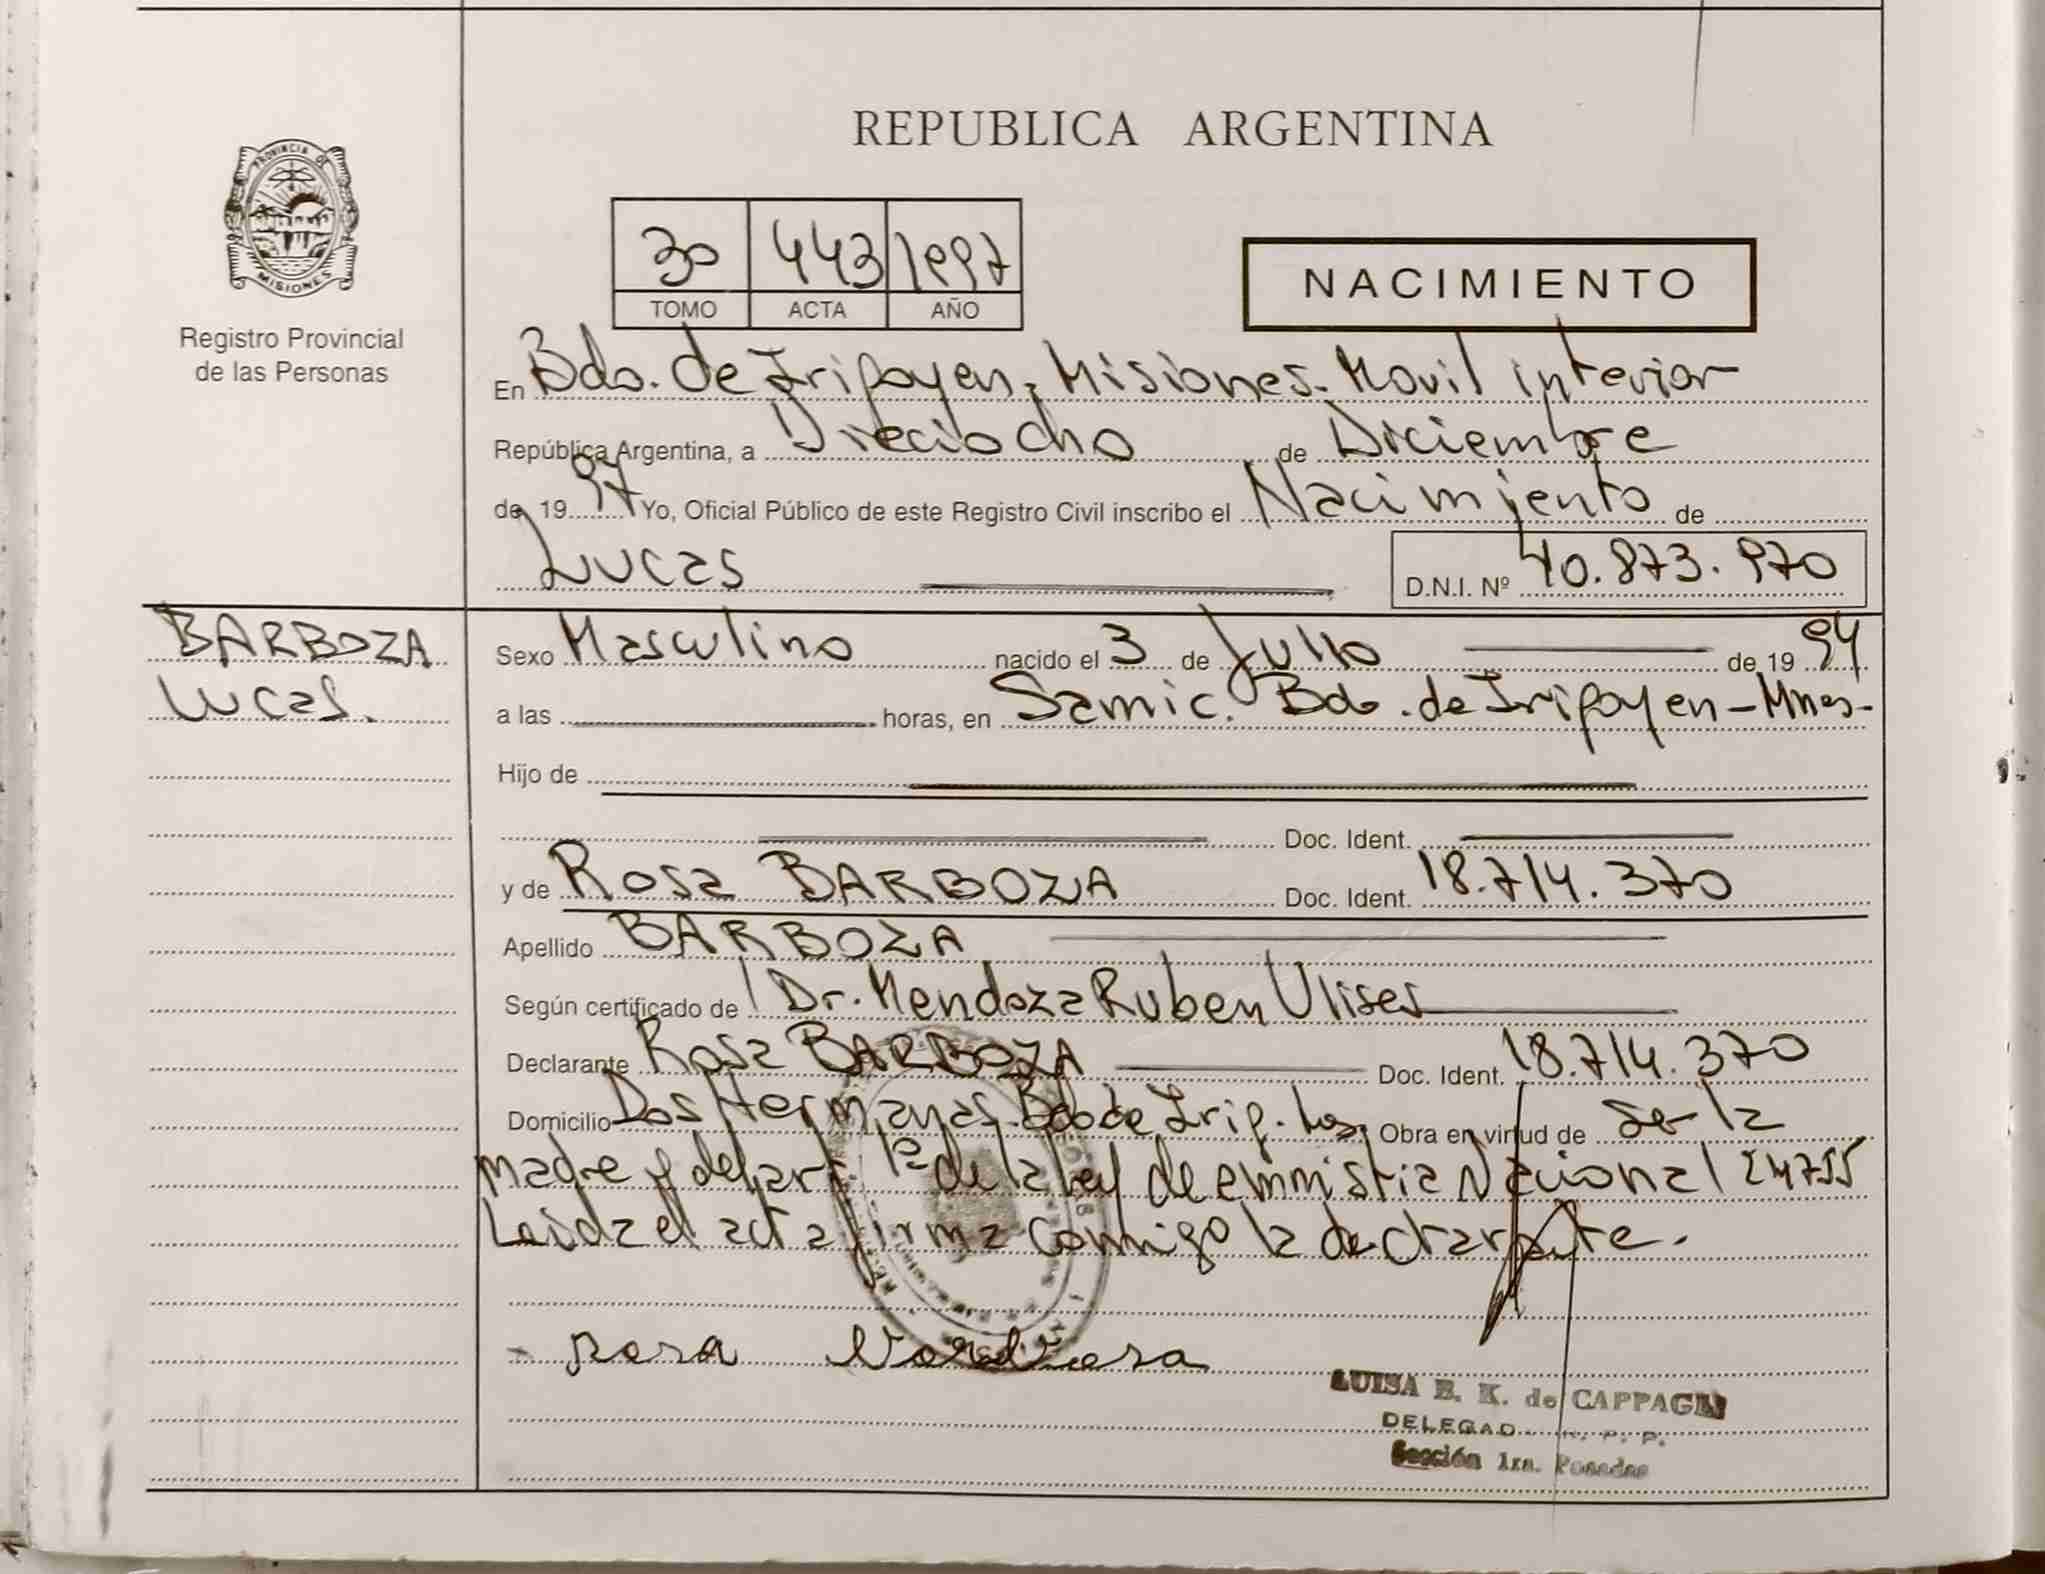 REPUBLICA ARGENTINA
PROVINCIA DE
MISIONES
Registro Provincial
de las Personas
30 443 1997
TOMO ACTA AÑO
NACIMIENTO
En Bdo. de Irigoyen, Misiones. Movil interior
República Argentina, a Dieciocho de Diciembre
de 19 97 Yo, Oficial Público de este Registro Civil inscribo el Nacimiento de
Lucas D.N.I. Nº 40.873.970
BARBOZA
Lucas.
Sexo Masculino nacido el 3 de Julio de 19 94
a las horas, en Samic. Bdo. de Irigoyen - Mnes-
Hijo de
Doc. Ident.
y de Rosa BARBOZA Doc. Ident. 18.714.370
Apellido BARBOZA
Según certificado de Dr. Mendoza Ruben Ulises
Declarante Rosa BARBOZA Doc. Ident. 18.714.370
Domicilio Dos Hermanas. Bdo de Irig. Obra en virtud de ser la
madre y de la ley de emnistia Nacional 24755
Leida el acta firma conmigo la
rosa
LUISA B. K. de CAPPAGLI
DELEGAD R. P. P.
Sección 1ra. Posadas